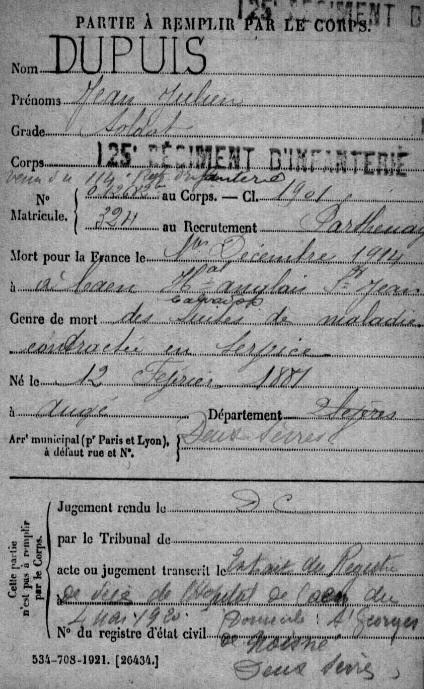 125E RÉGIMENT D
PARTIE À REMPLIR PAR LE CORPS.
Nom DUPUIS
Prénoms Jean Julien
Grade Soldat
Corps 125E RÉGIMENT D'INFANTERIE
venu du 114e Régt d'infanterie
No au Corps. — Cl. 1901
Matricule. 324 au Recrutement Parthenay
Mort pour la France le 1er Décembre 1914
à Caen Hal anglais St Jean
Calvados
Genre de mort des suites de maladie
contractée en service
Né le 12 Février 1881
à Augé Département 2 Sèvres
Arrt municipal (pr Paris et Lyon), Deux Sèvres
à défaut rue et No.
Cette partie
n'est pas à remplir
par le Corps.
Jugement rendu le D C
par le Tribunal de
acte ou jugement transcrit le Extrait du Registre
de l'Hôpital de Caen du
4 mai 1920 Domicile : St Georges
No du registre d'état civil de Noisné
Deux Sèvres
534-708-1921. [26434.]